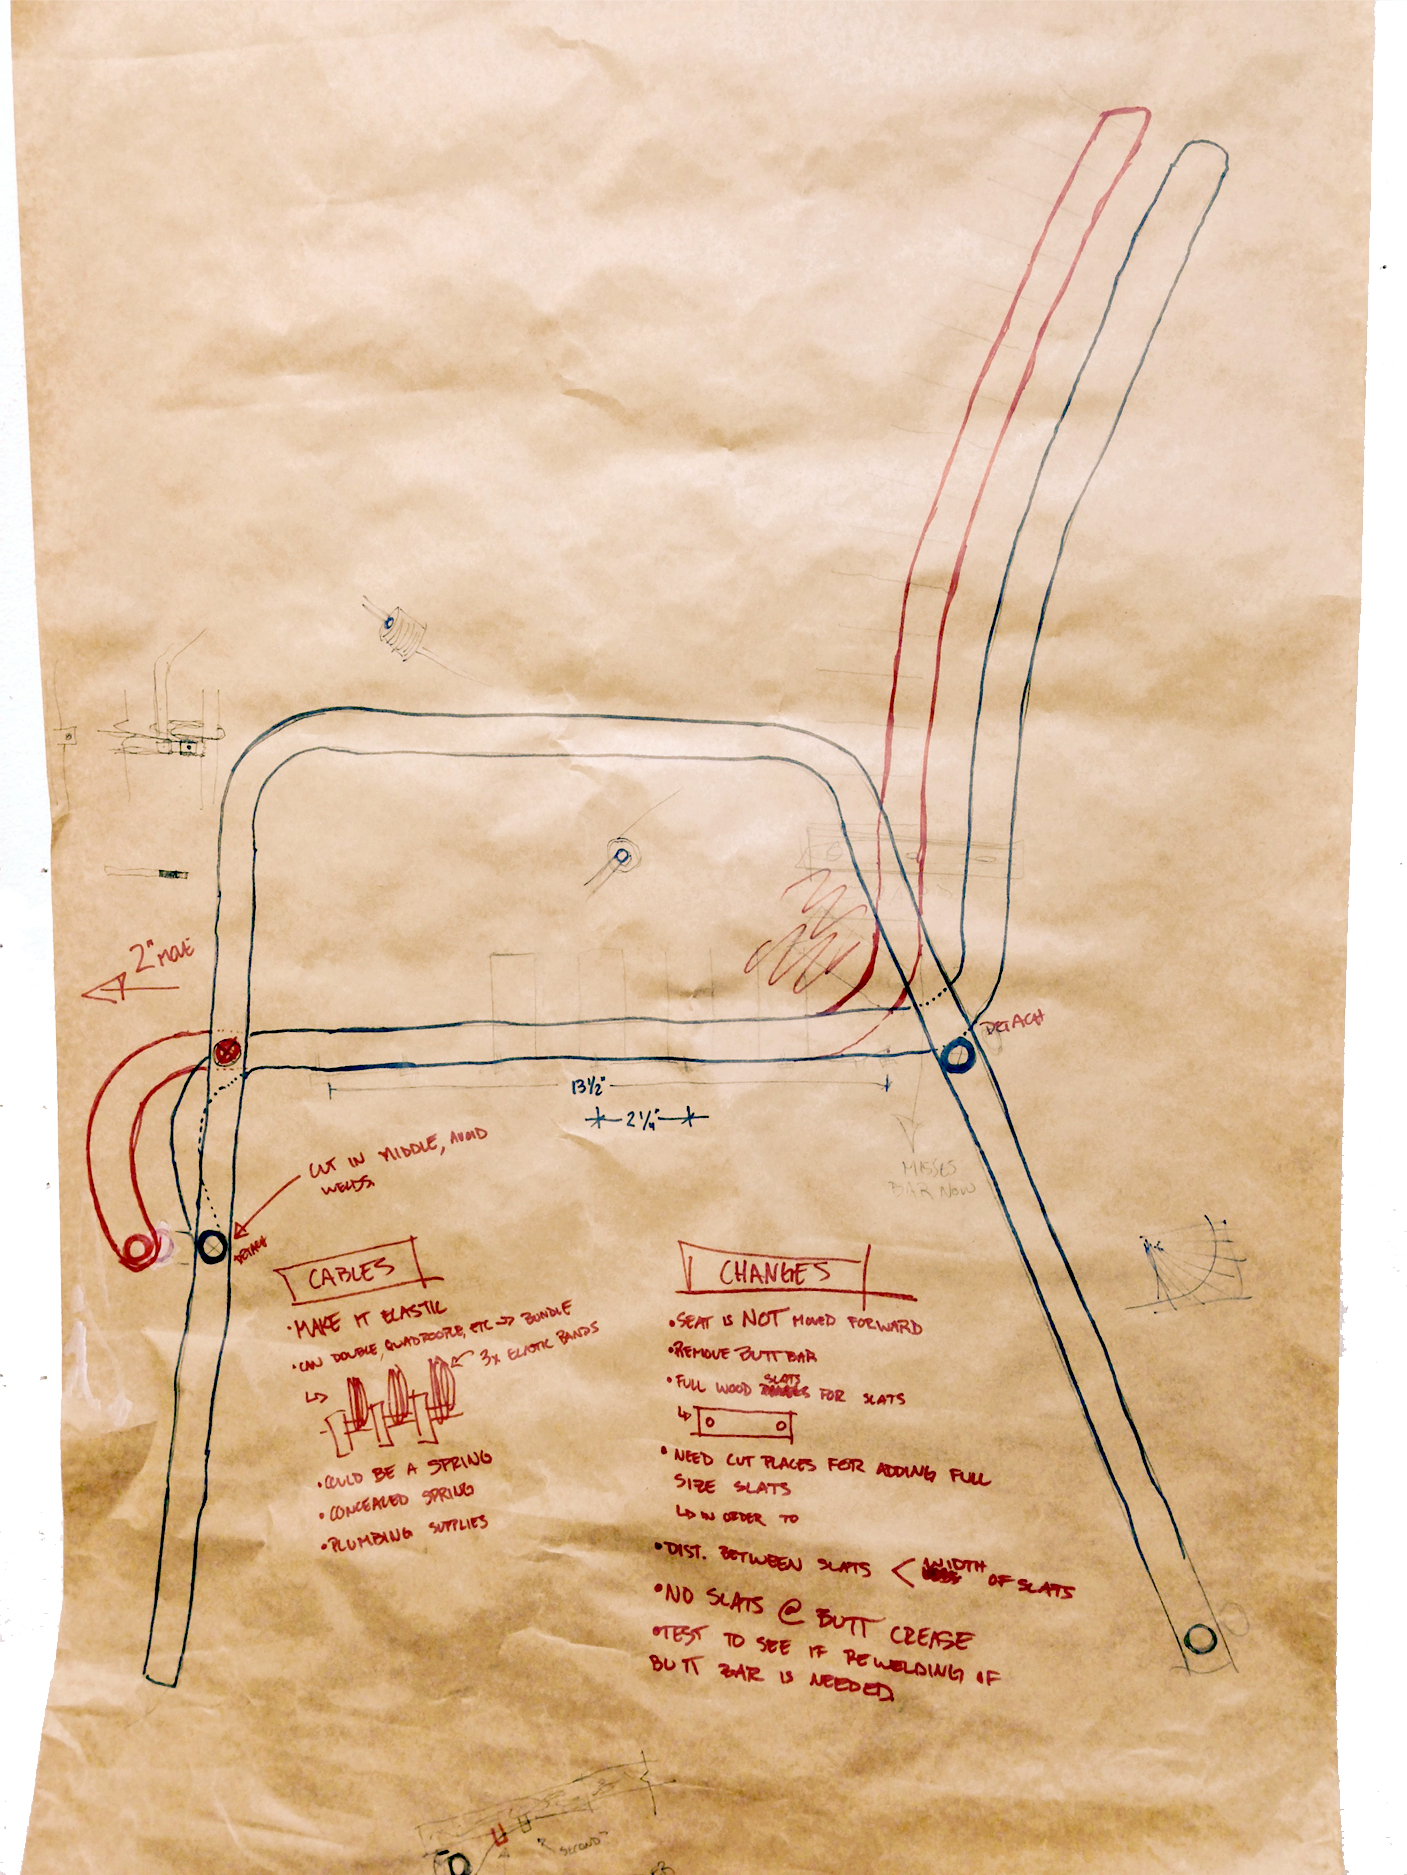 2" MOVE
DETACH
13½"
2¼"
CUT IN MIDDLE, AVOID
WELDS.
MISSES
BAR NOW
DETACH
CABLES
•MAKE IT ELASTIC
•CAN DOUBLE, QUADROOPLE, ETC → BUNDLE
3x ELASTIC BANDS
•COULD BE A SPRING
•CONCEALED SPRING
•PLUMBING SUPPLIES
CHANGES
•SEAT IS NOT MOVED FORWARD
•REMOVE BUTT BAR
•FULL WOOD SLATS FOR SLATS
•NEED CUT PLACES FOR ADDING FULL
SIZE SLATS
↳ IN ORDER TO
•DIST. BETWEEN SLATS < WIDTH OF SLATS
•NO SLATS @ BUTT CREASE
•TEST TO SEE IF REWELDING OF
BUTT BAR IS NEEDED.
SECOND